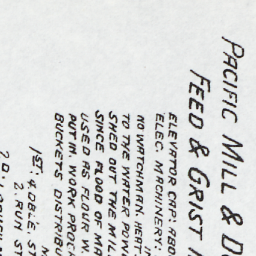 PACIFIC MILL & D
FEED & GRIST
ELEVATOR CAP: ABO
ELEC. MACHINERY:
NO WATCHMAN. HEAT:
TO THE WATER POW
SHED OUT THE MIL
SINCE FLOOD OF
USED AS FLOUR W
PUT IN. WORK PROC
BUCKETS DISTRIBU
1ST: 4 DBLE. ST
2. RUN ST
2D: